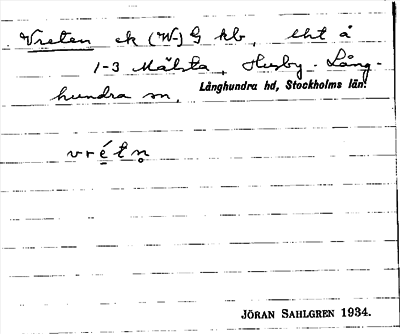 Vreten ek (W-) G kb, lht å
1-3 Mälsta, Husby-Lång-
hundra sn, Långhundra hd, Stockholms län.
vrétn̥
JÖRAN SAHLGREN 1934.